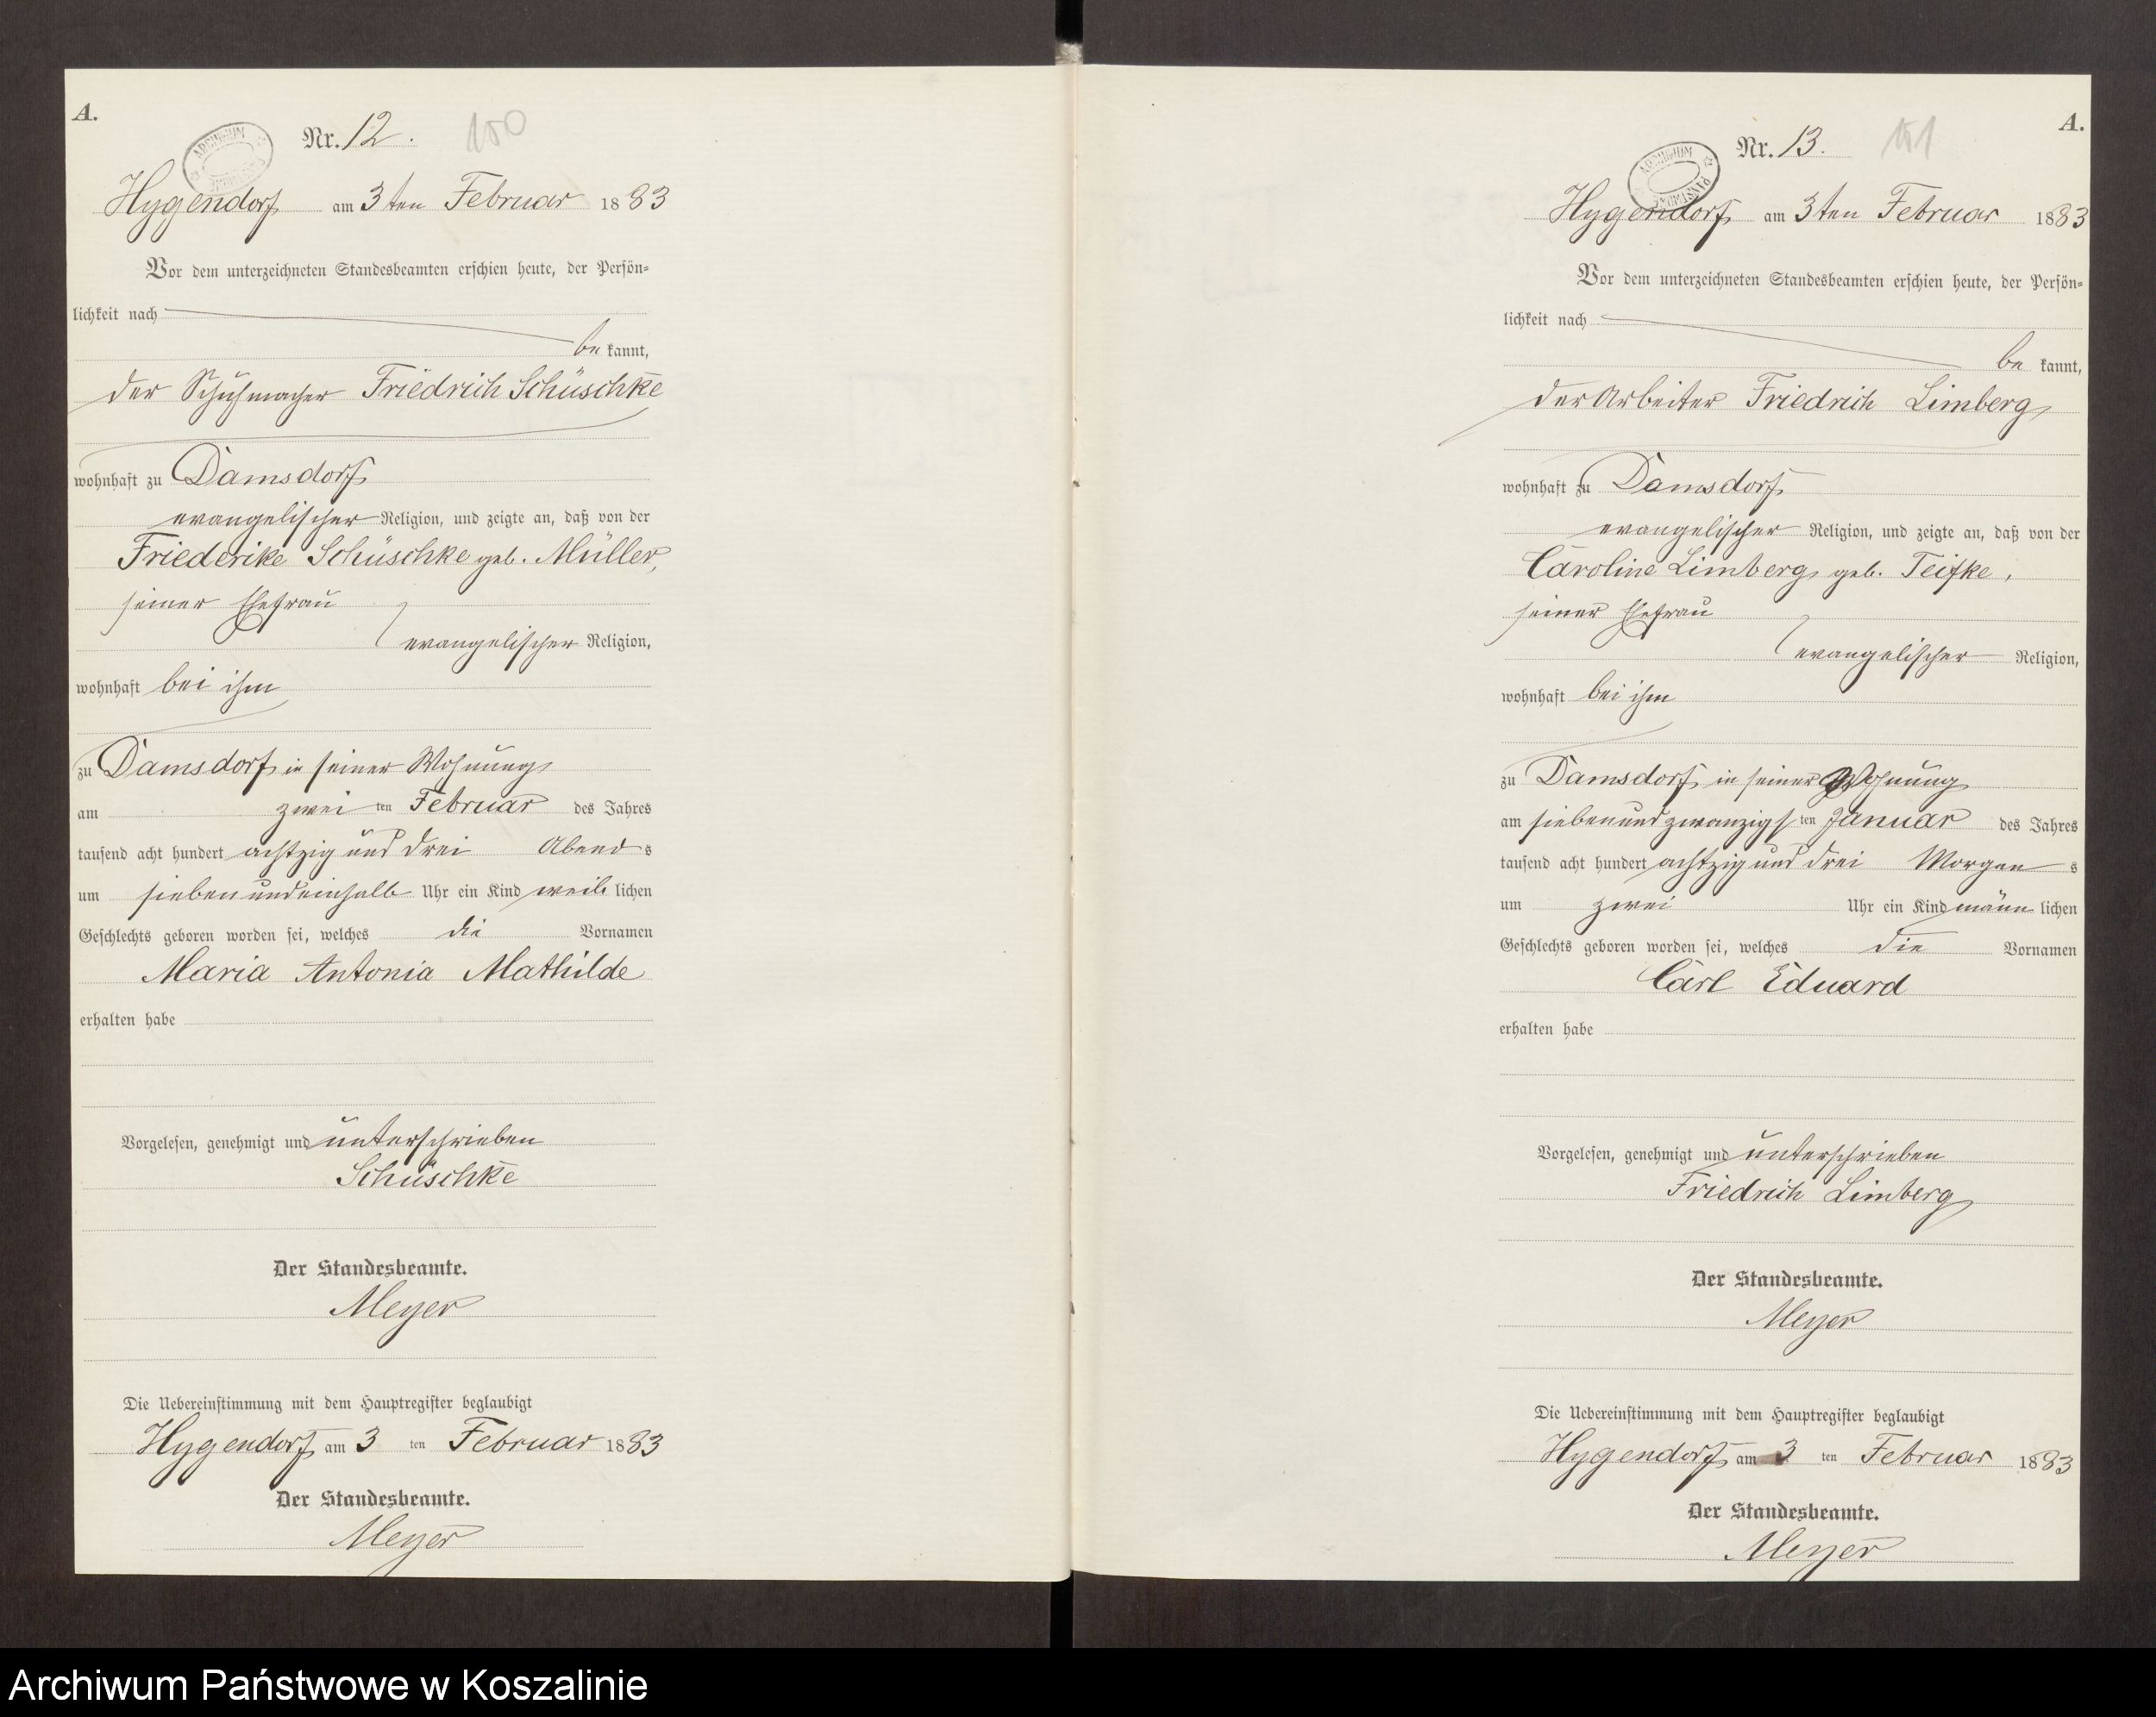 A.
Nr. 12.
150
Hygendorf am 3ten Februar 1883
Vor dem unterzeichneten Standesbeamten erschien heute, der Persön-
lichkeit nach
be kannt,
der Schuhmacher Friedrich Schüschke
wohnhaft zu Damsdorf
evangelischer Religion, und zeigte an, daß von der
Friederike Schüschke geb. Müller,
seiner Ehefrau
evangelischer Religion,
wohnhaft bei ihm
zu Damsdorf in seiner Wohnung
am zwei ten Februar des Jahres
tausend acht hundert achtzig und drei Abend s
um sieben und einhalb Uhr ein Kind weib lichen
Geschlechts geboren worden sei, welches die Vornamen
Maria Antonia Mathilde
erhalten habe
Vorgelesen, genehmigt und unterschrieben
Schüschke
Der Standesbeamte.
Meyer
Die Uebereinstimmung mit dem Hauptregister beglaubigt
Hygendorf am 3 ten Februar 1883
Der Standesbeamte.
Meyer
A.
Nr. 13.
151
Hygendorf am 3ten Februar 1883
Vor dem unterzeichneten Standesbeamten erschien heute, der Persön-
lichkeit nach
be kannt,
der Arbeiter Friedrich Limberg
wohnhaft zu Damsdorf
evangelischer Religion, und zeigte an, daß von der
Caroline Limberg geb. Teifke,
seiner Ehefrau
evangelischer Religion,
wohnhaft bei ihm
zu Damsdorf in seiner Wohnung
am siebenundzwanzigs ten Januar des Jahres
tausend acht hundert achtzig und drei Morgen s
um zwei Uhr ein Kind männ lichen
Geschlechts geboren worden sei, welches die Vornamen
Carl Eduard
erhalten habe
Vorgelesen, genehmigt und unterschrieben
Friedrich Limberg
Der Standesbeamte.
Meyer
Die Uebereinstimmung mit dem Hauptregister beglaubigt
Hygendorf am 3 ten Februar 1883
Der Standesbeamte.
Meyer
Archiwum Państwowe w Koszalinie